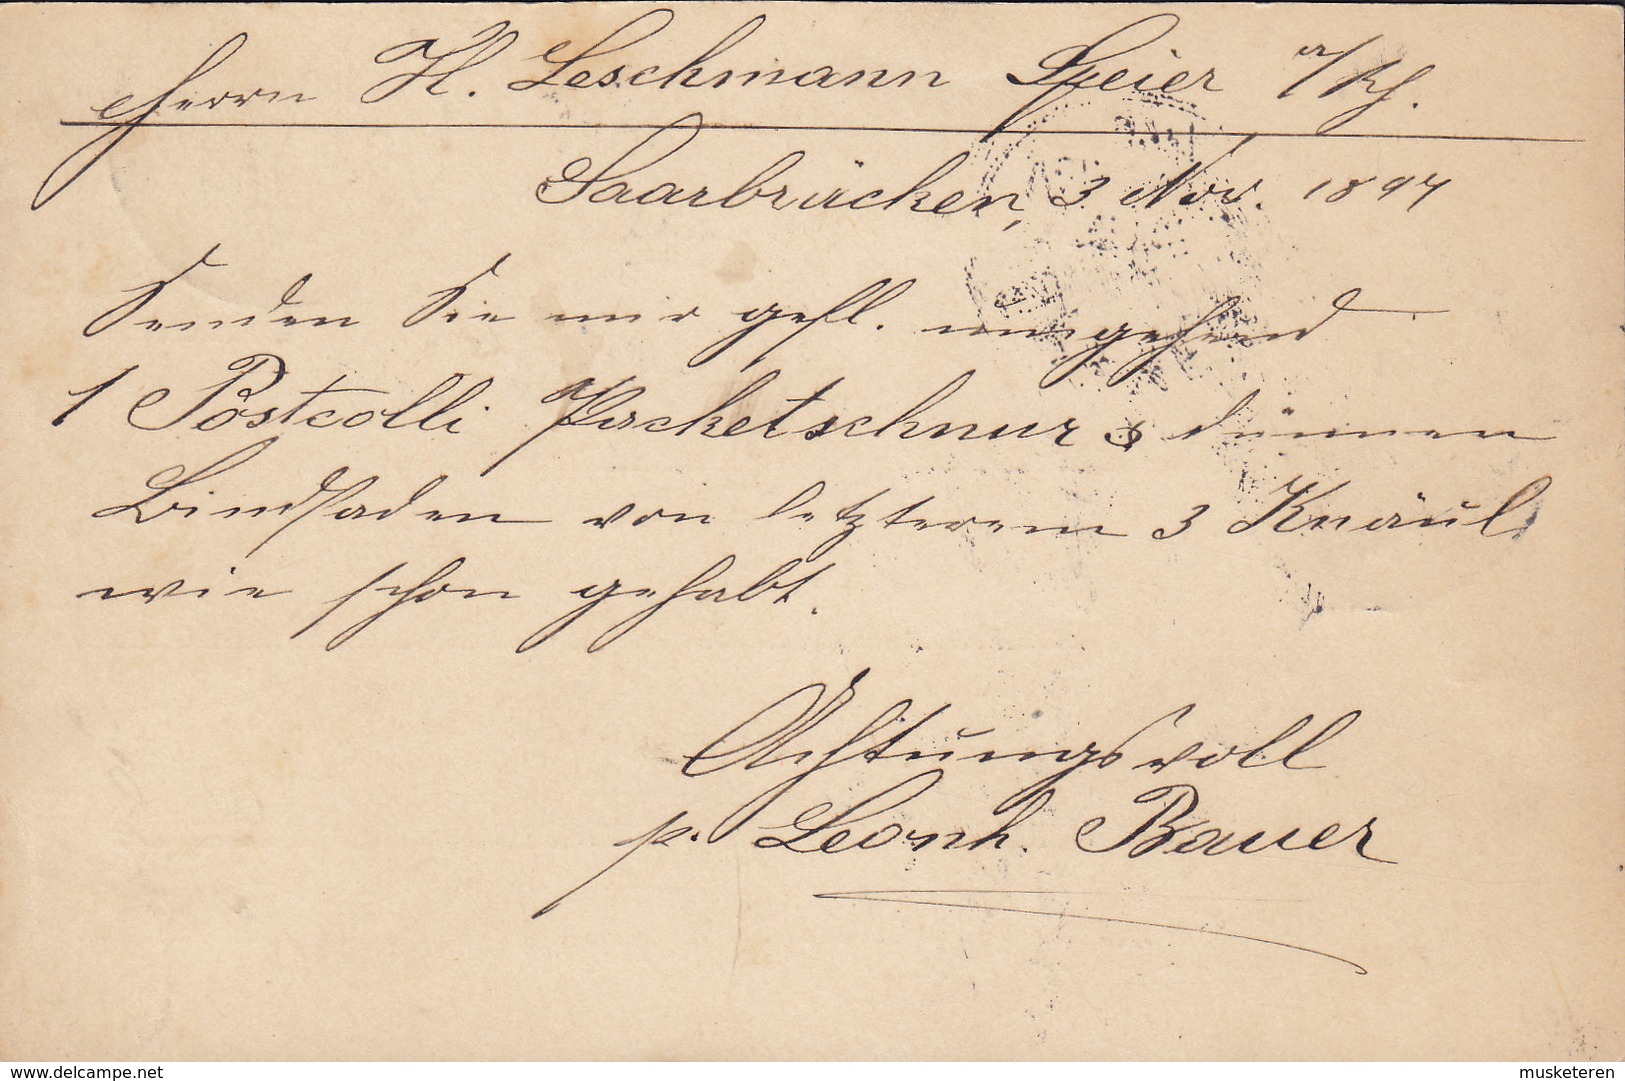 Herrn H. Leschmann Speier a/Rh.
Saarbrücken, 3 Nov. 1894
Senden Sie mir gefl. umgehend
1 Postcolli Packetschnur & dünnen
Bindfaden von letzterem 3 Knäul
wie schon gehabt.
Achtungsvoll
p. Leonh. Bauer
www.delcampe.net
musketeren